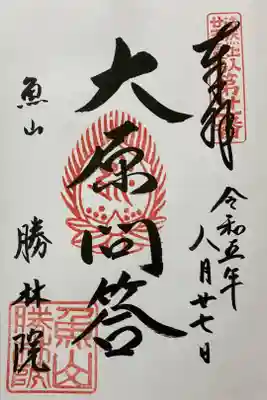 奉拝
令和五年
八月廿七日
大原問答
魚山
勝林院
魚山
勝林院